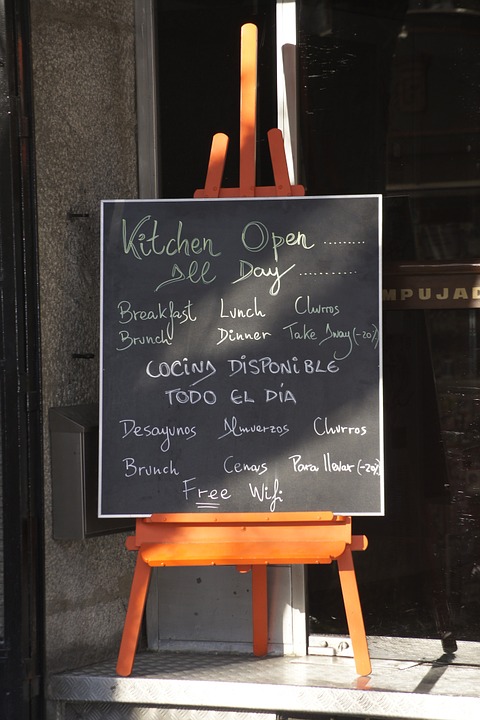 Kitchen Open ........
All Day ...........
Breakfast Lunch Churros
Brunch Dinner Take Away (-20%)
COCINA DISPONIBLE
TODO EL DÍA
Desayunos Almuerzos Churros
Brunch Cenas Para llevar (-20%)
Free Wifi
MPUJAD